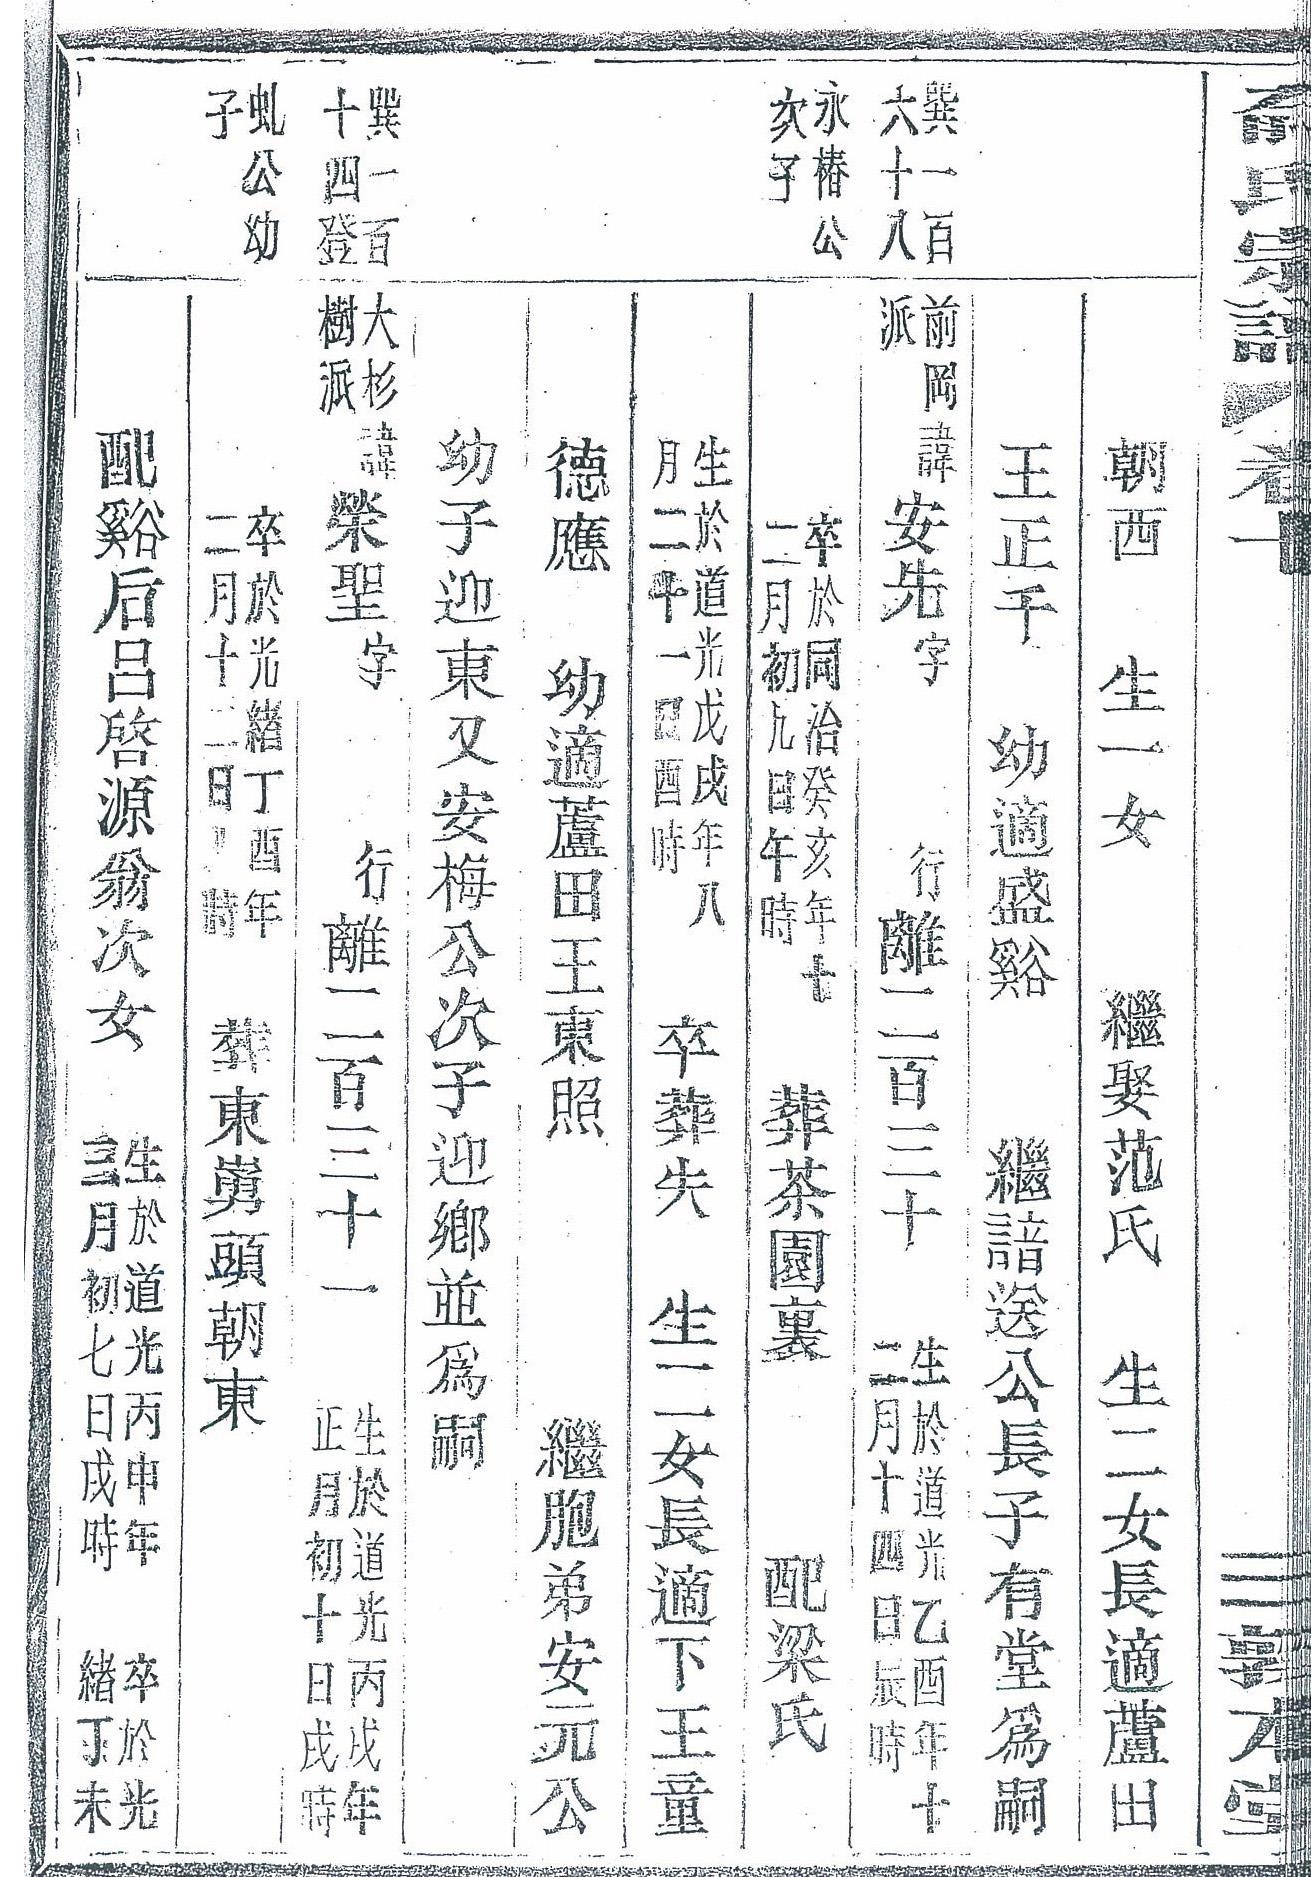 俞氏宗譜 卷十一 三 敦本堂
朝西 生一女 繼娶范氏 生二女長適蘆田
王正千 幼適盛谿 繼諳送公長子有堂為嗣
巽一百六十八 前岡派 諱安先字 行離二百三十 生於道光乙酉年十二月十四日辰時
永椿公次子 卒於同治癸亥年十二月初九日午時 葬茶園裏 配梁氏
生於道光戊戌年八月二十一日酉時 卒葬失 生二女長適下王童
德應 幼適蘆田王東照 繼胞弟安元公
幼子迎東又安梅公次子迎鄉並為嗣
巽一百十四登 大杉樹派 諱榮聖字 行離二百三十一 生於道光丙戌年正月初十日戌時
虬公幼子 卒於光緒丁酉年二月十二日時 葬東嶴頭朝東
配谿后呂啓源翁次女 生於道光丙申年三月初七日戌時 卒於光緒丁未